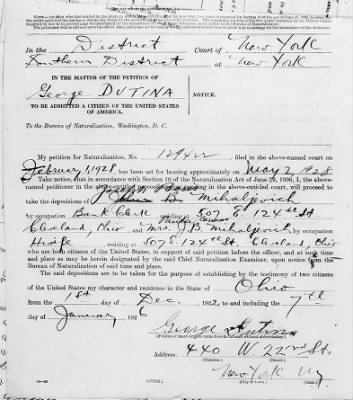 In the District Court of New York
Southern District at New York
IN THE MATTER OF THE PETITION OF
George DUTINA
NOTICE.
TO BE ADMITTED A CITIZEN OF THE UNITED STATES
OF AMERICA.
To the Bureau of Naturalization, Washington, D. C.
My petition for Naturalization, No. , filed in the above-named court on
February 1, 1928, has been set for hearing approximately on May 2, 1928.
Take notice, that in accordance with Section 10 of the Naturalization Act of June 29, 1906, I, the above-
named petitioner in the above-entitled proceeding, will proceed
to take the depositions of Mihaljevich
by occupation Bank Clerk residing at 507 E. 124th St.
Cleveland, Ohio and Mrs. J.B. Mihaljevich, by occupation
Hwife, residing at 507 E. 124th St, Cleveland, Ohio
who are both citizens of the United States, in support of said petition before the officer, and at such time
and place as may be herein designated by the said Chief Naturalization Examiner, upon notice from the
Bureau of Naturalization of said time and place.
The said depositions are to be taken for the purpose of establishing by the testimony of two citizens
of the United States my character and residence in the State of Ohio
from the 1st day of Dec. 1922, to and including the 7th
day of January, 1926
George Dutina
(Petitioner must sign name in full without abbreviation.)
Address: 440 W. 22nd St.
New York N.Y.
(City or town.)
(OVER.)